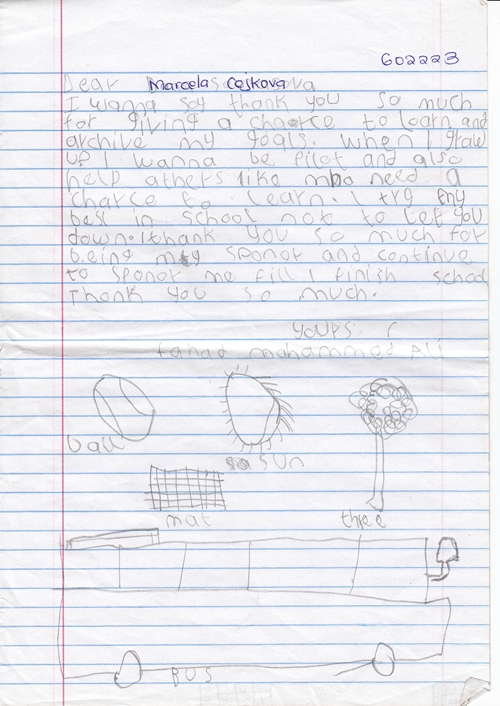 602223
Dear Marcela Cejkova
I wanna say thank you so much
for giving a chance to learn and
archive my goals. When I grow
up I wanna be pilot and also
help athers like who need a
chance to learn. I try my
best in school not to let you
down. I thank you so much for
being my sponor and continue
to sponor me till I finish school
Thank you so much.
yours:
Mohammed Ali
ball
sun
mat
three
BUS